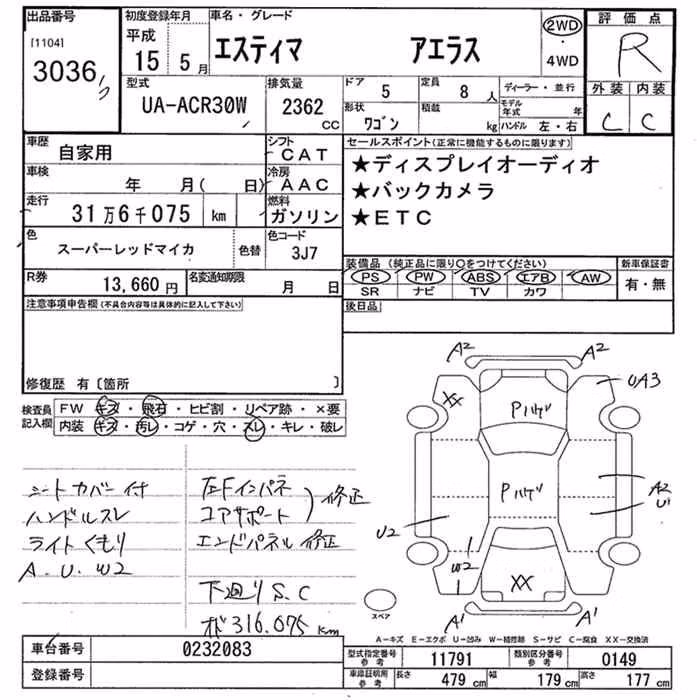 出品番号
[1104]
3036
初度登録年月
平成
15年 5月
車名・グレード
エスティマ アエラス
2WD
・
4WD
評価点
R
外装 内装
C C
型式
UA-ACR30W
排気量
2362
cc
ドア 5
定員 8人
形状 ワゴン
積載 kg
ディーラー・並行
モデル年式 年
ハンドル 左・右
車歴
自家用
シフト
CAT
車検
年 月( 日)
冷房
AAC
走行
31万6千075 km
燃料
ガソリン
色
スーパーレッドマイカ
色替
色コード
3J7
R券
13,660円
名変通知期限
月 日
セールスポイント(正常に機能するものに限ります)
★ディスプレイオーディオ
★バックカメラ
★ETC
装備品(純正品に限り○をつけてください)
PS PW ABS エアB AW
SR ナビ TV カワ
新車保証書
有・無
後日品
注意事項申告欄(不具合内容等は具体的に記入して下さい)
修復歴 有〔箇所 〕
検査員
記入欄
FW キズ・飛石・ヒビ割・リペア跡・×要
内装 キズ・汚レ・コゲ・穴・スレ・キレ・破レ
シートカバー付
ハンドルスレ
ライトくもり
A.U.W2
左Fインパネ
コアサポート
修正
エンドパネル修正
下廻りS.C
316.075km
A2 A2
XX
Pハゲ
UA3
Pハゲ
A2
U1
U2
W2
XX
A1 A1
スペア
A-キズ E-エクボ U-凹み W-補修跡 S-サビ C-腐食 XX-交換済
車台番号
0232083
登録番号
型式指定番号
参考
11791
類別区分番号
参考
0149
車庫証明用
参考
長さ 479cm
幅 179cm
高さ 177cm